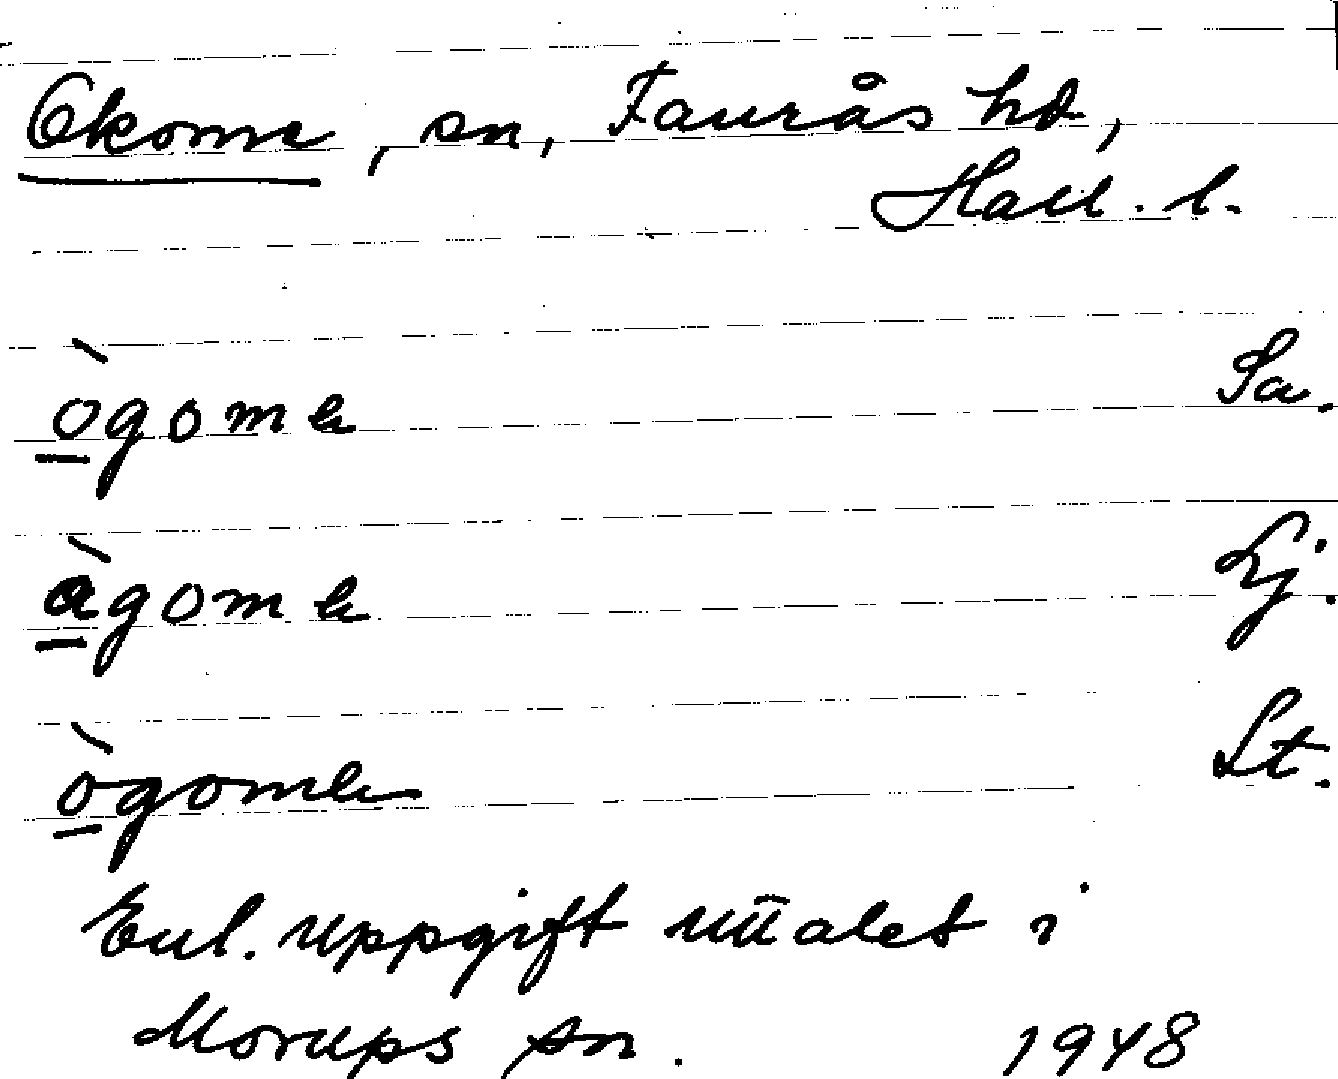 Okome, sn, Faurås hd,
Hall. l.
ògomɐ Sa.
àgomɐ Lj.
ògomɐ St.
Enl. uppgift uttalet i
Morups sn. 1948